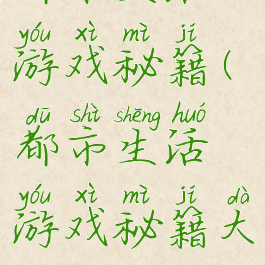 yóu xì mì jí
游戏秘籍(
dū shì shēng huó
都市生活
yóu xì mì jí dà
游戏秘籍大